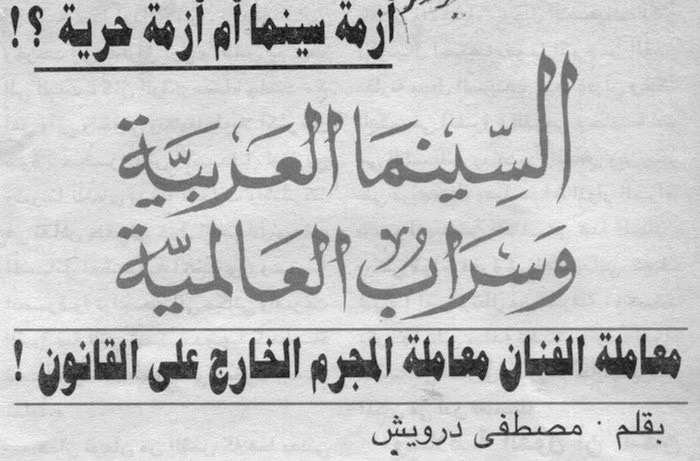 أزمة سينما أم أزمة حرية ؟ !
السِّينمَا العَرَبيَّة
وَسَرَابُ العَالميَّة
معاملة الفنان معاملة المجرم الخارج على القانون !
بقلم : مصطفى درويش